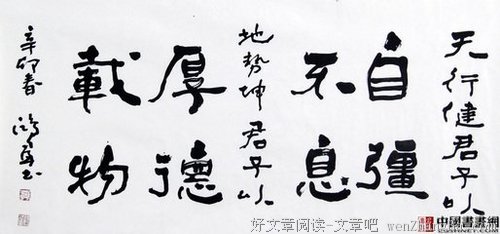 天行健君子以
自彊
不息
地勢坤君子以
厚德
載物
辛卯春
中國書畫網
好文章阅读-文章吧